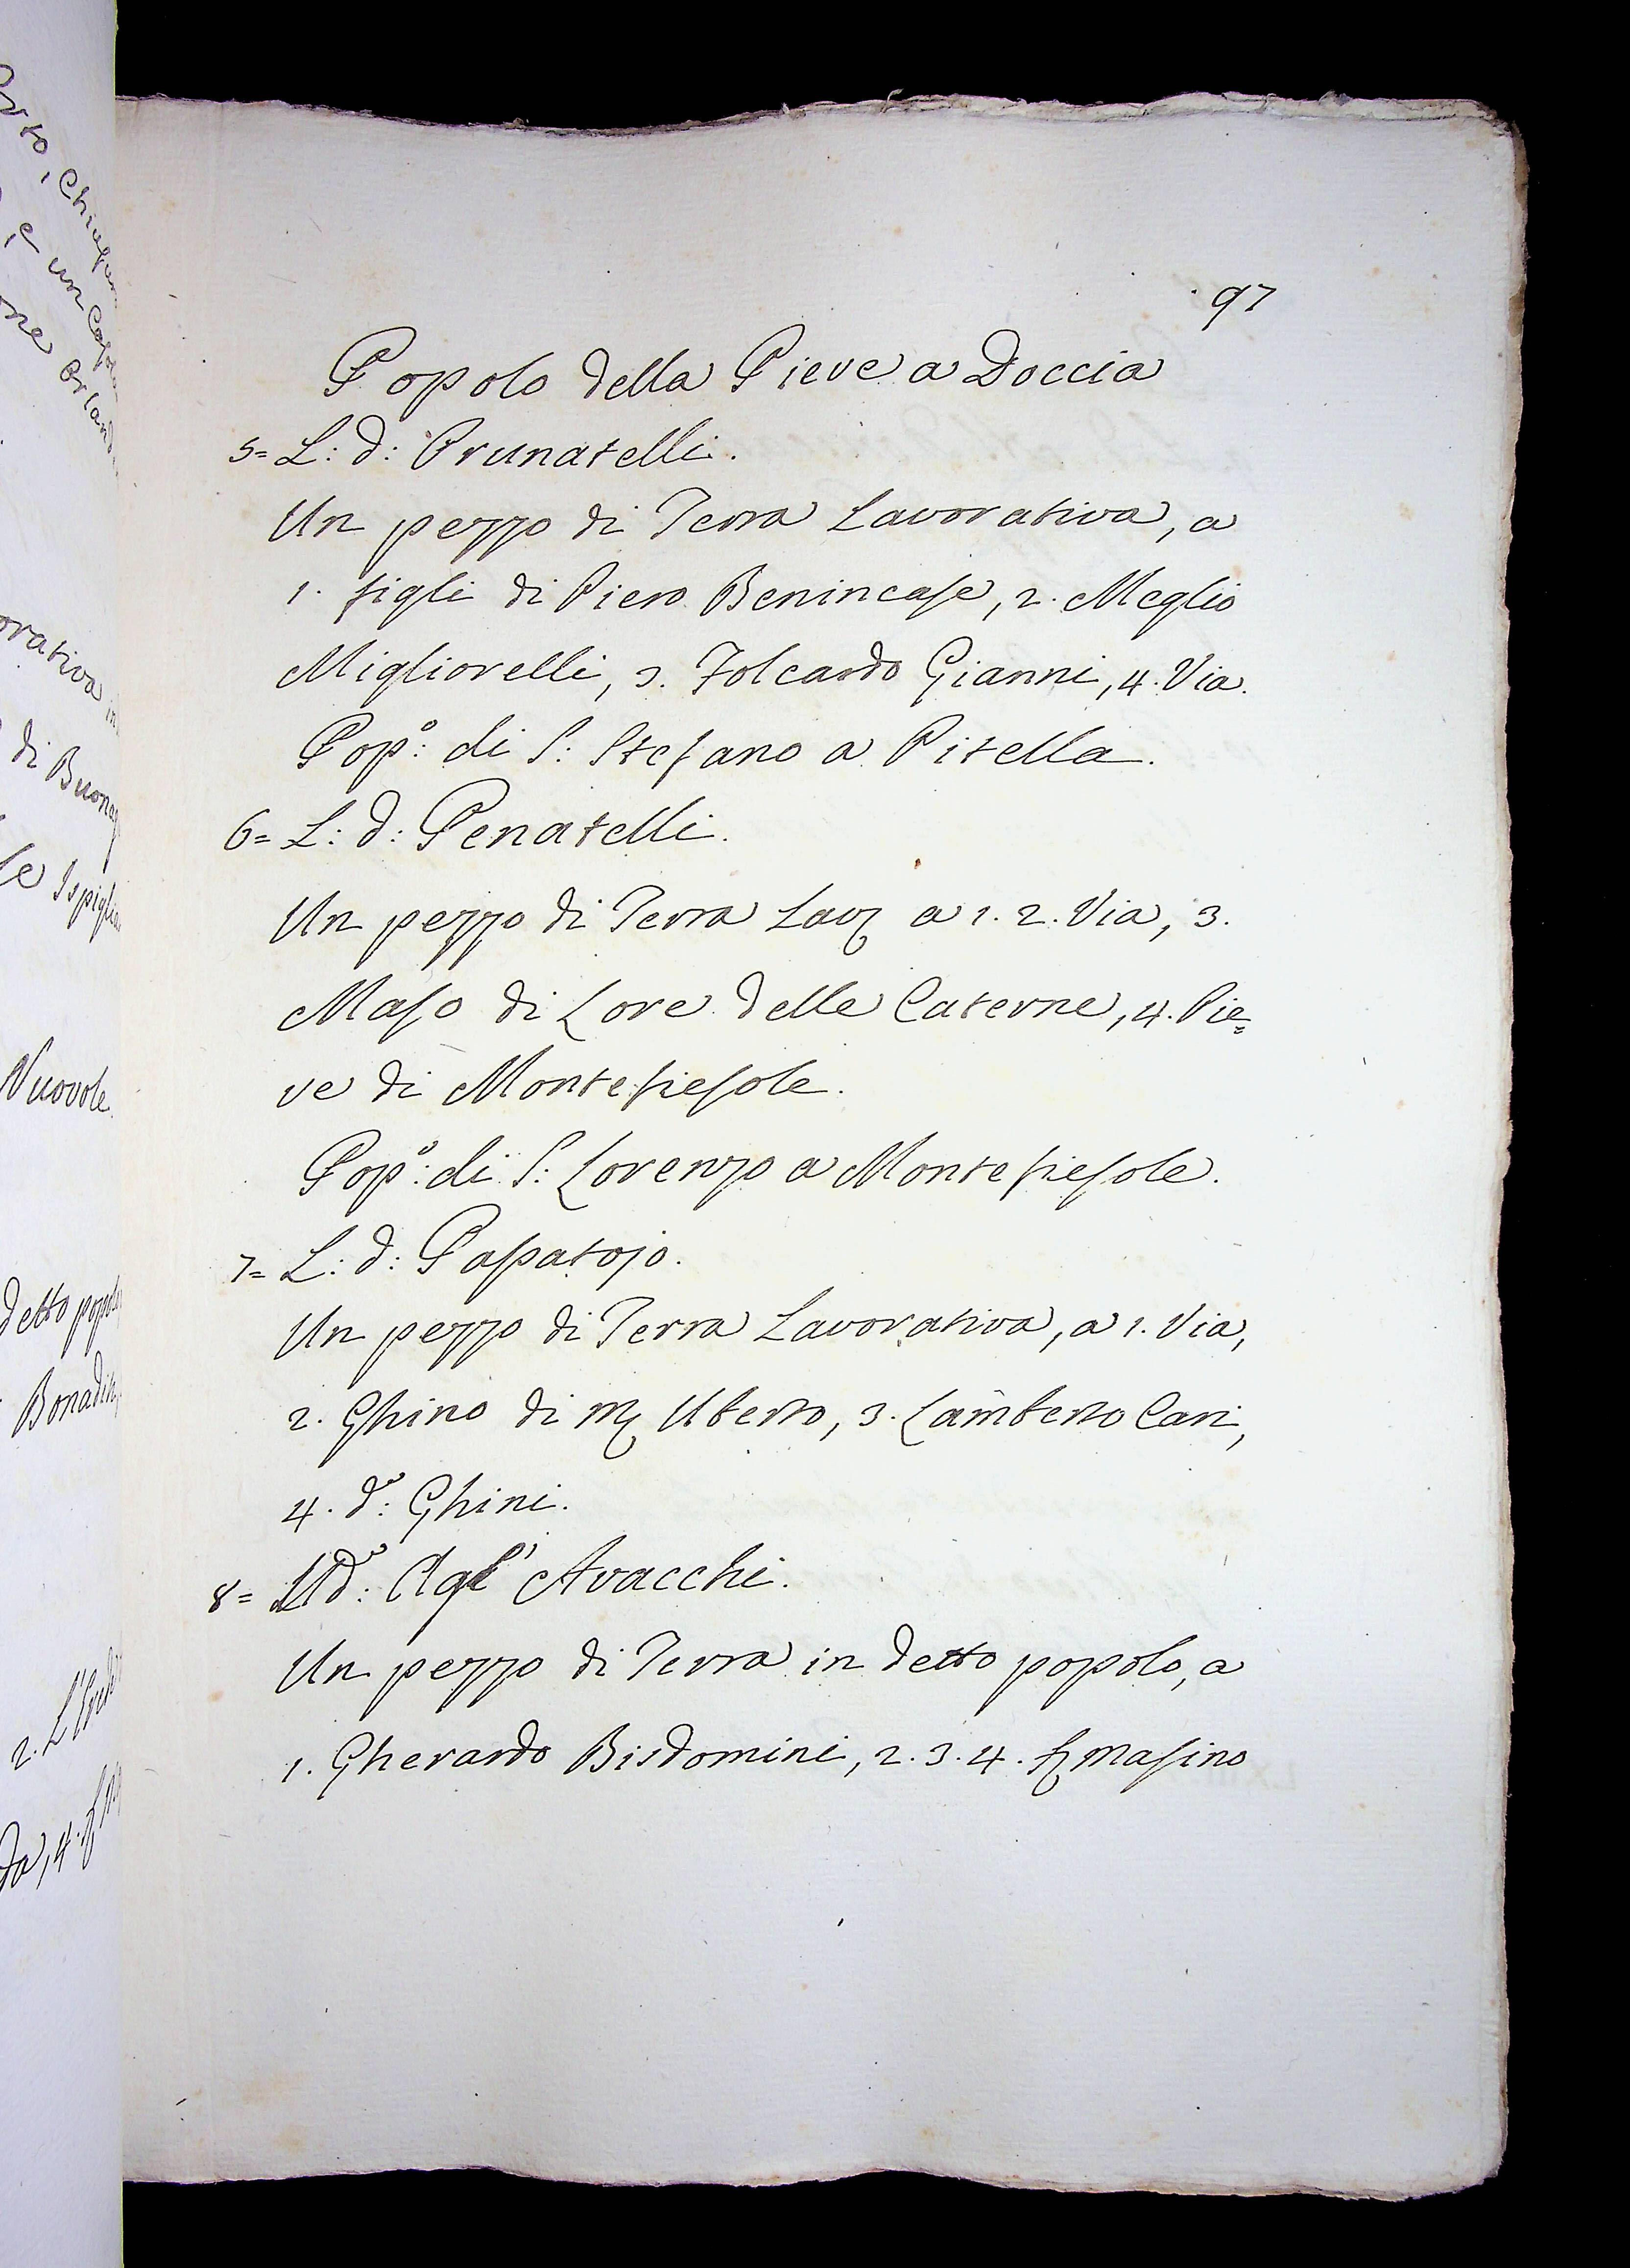 97
Popolo della Pieve a Doccia
5= L: d: Prunatelli.
Un pezzo di Terra Lavorativa, a
1. figli di Piero Benincase, 2. Meglio
Migliorelli, 3. Folcardo Gianni, 4. Via.
Pop.º: di S: Stefano a Pitella.
6= L: d: Penatelli.
Un pezzo di Terra Lav. a 1. 2. Via, 3.
Maso di Lore delle Caterne, 4. Pie=
ve di Montefiesole.
Pop.º: di S: Lorenzo a Montefiesole.
7= L: d: Passatojo.
Un pezzo di Terra Lavorativa, a 1. Via,
2. Ghino di M. Uberto, 3. Lamberto Cari,
4. d.º: Ghini.
8= L d.º: Agl' Avacchi.
Un pezzo di Terra in detto popolo, a
1. Gherardo Bisdomini, 2. 3. 4. Masino
orativa
di
Nuovole.
detto
2.